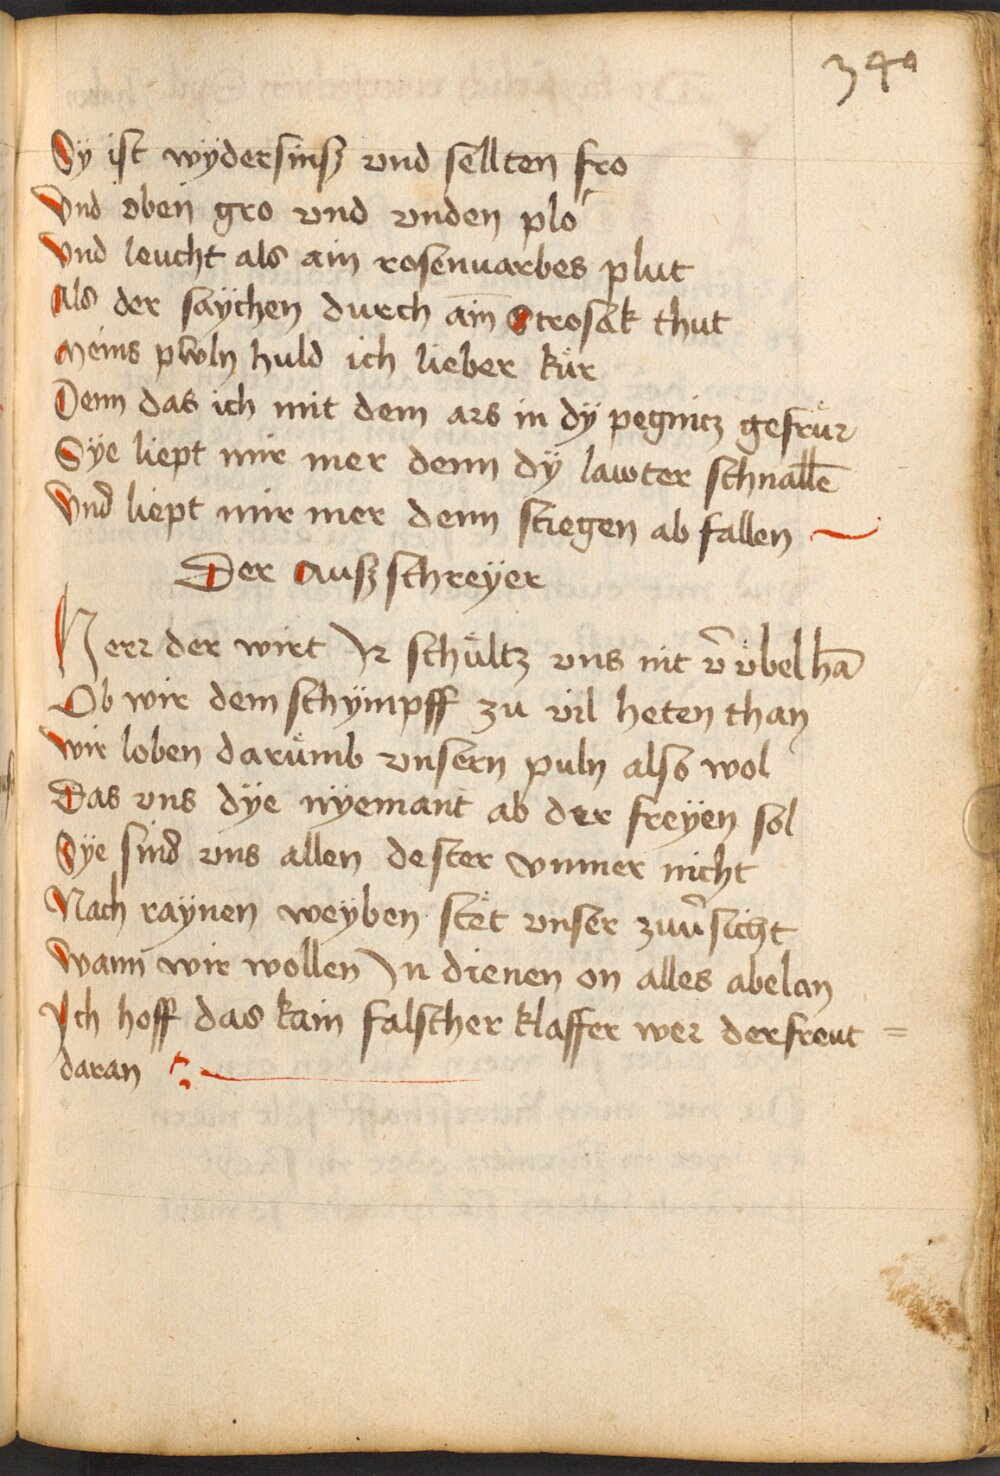 340
Sÿ ist wÿdersinß vnd sellten fro
Vnd oben gro vnd vnden plo
Vnd leucht als ain rosenuarbes plut
Als der saÿchen durch ain Strosack thut
Meins pwln huld ich lieber kür
Denn das ich mit dem ars in dÿ pegnicz gefrür
Sÿe liept mir mer denn dÿ lawter schnallē
Vnd liept mir mer denn stiegen ab fallen
Der Außschreÿer
Herr der wirt Ir schültz vns nit v̄ v̈bel hā
Ob wir dem schÿmpff zu vil heten than
Wir loben darümb vnsern puln also wol
Das vns dÿe nÿemant ab der freÿen sol
Sÿe sind vns allen dester vnmer nicht
Nach raÿnen weÿben stet vnser zuu̾sicht
Wann wir wollen In dienen on alles abelan
Ich hoff das kain falscher klaffer wer derfreut =
daran